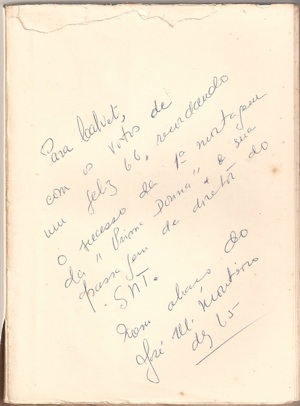 Para Calvet,
com os votos de
um feliz 66, recordando
o sucesso da 1ª montagem
da "Prima Donna" e sua
passagem de diretor do
SNT.
Com abraço do
José M. Monteiro
dez 65